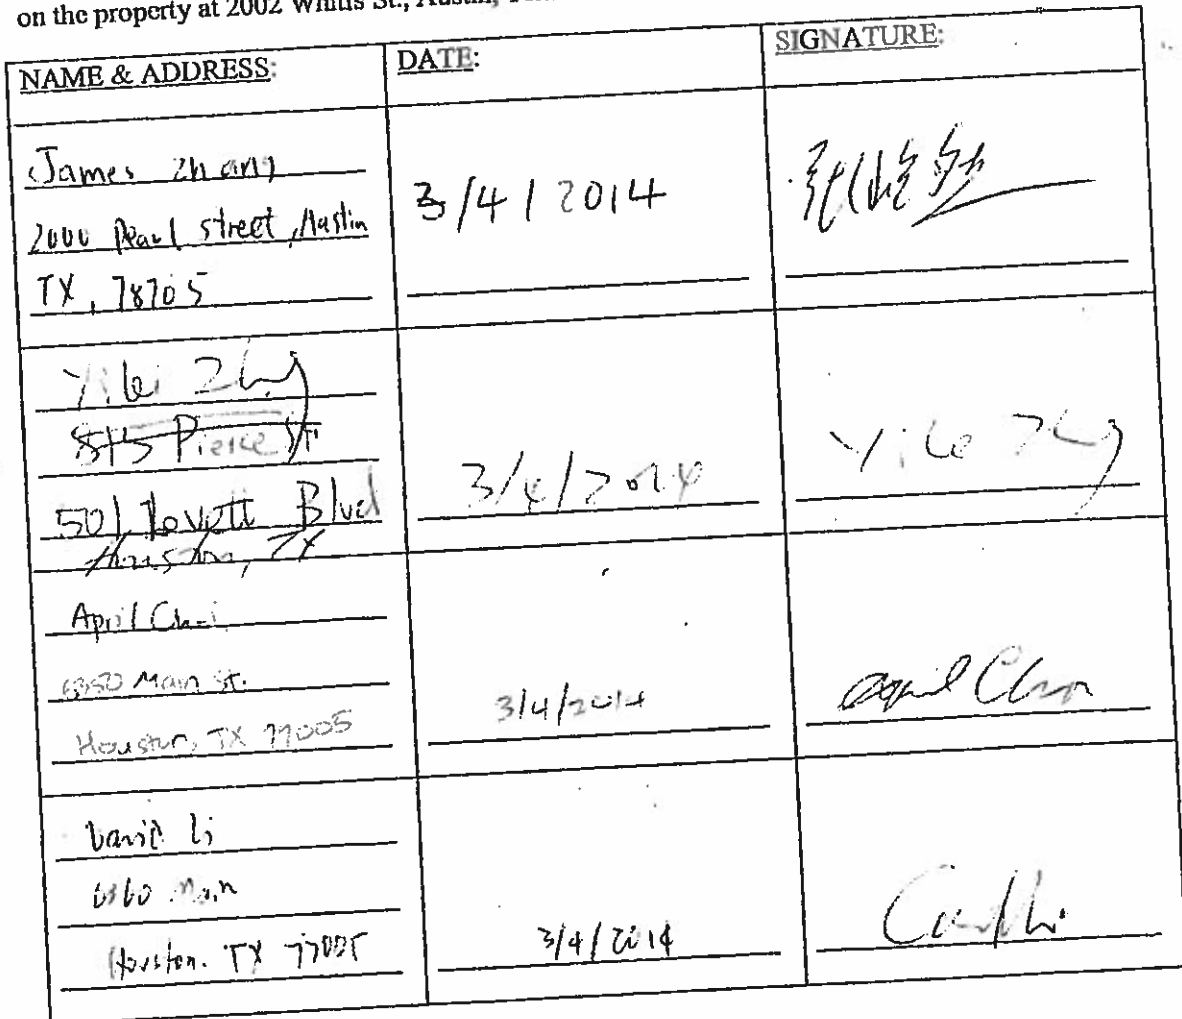 on the property at 2002 Whitis St., Austin,
NAME & ADDRESS:
DATE:
SIGNATURE:
James Zhang
2000 Pearl street, Austin
TX, 78705
3/4/2014
Yilei
815 Pierce St
501 Lovett Blvd
Houston, TX
3/4/2014
April
Main St.
Houston, TX 77005
3/4/2014
April
David Li
6360 Main
Houston. TX 77005
3/4/2014